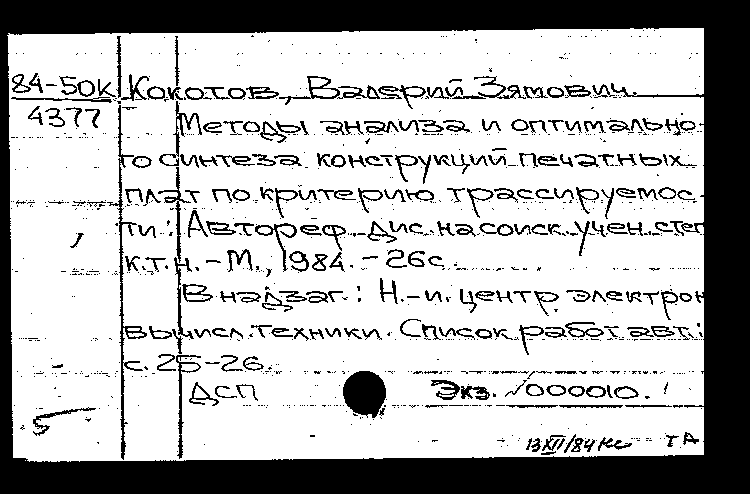 84-50к Кокотов, Валерий Зямович.
4377 Методы анализа и оптимально-
го синтеза конструкций печатных
плат по критерию трассируемос-
ти: Автореф. дис. на соиск. учен. степ
к.т.н. - М., 1984. - 26с.
В надзаг.: Н.-и. центр электрон
вычисл. техники. Список работ авт.:
с. 25-26.
ДСП Экз. 000010.
5
13 XII/84 ТА